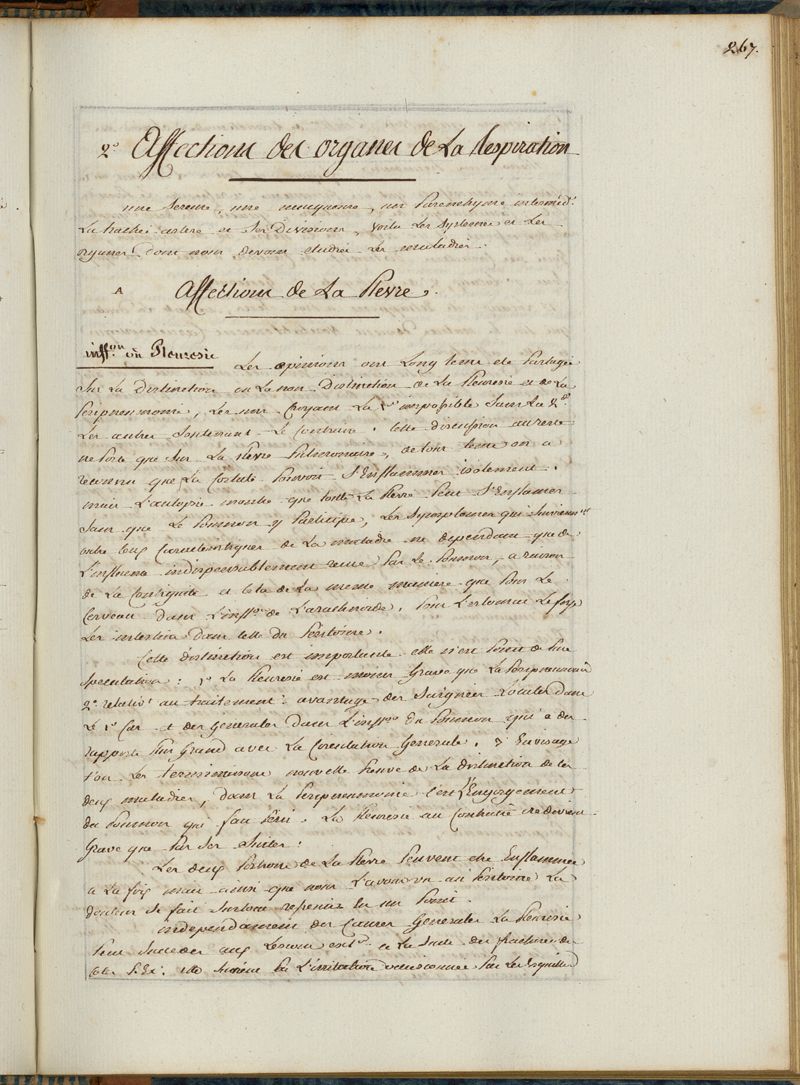 267.
2° Affections des organes de La Respiration
une sereuse, une muqueuse, un Parenchyme intermed.
La trachée artere et ses Divisions, voila Les systemes et Les
organes dont nous devons etudier Les maladies.
A Affections de La Plevre.
inff.on ou Pleuresie
Les opinions ont Longtems eté Partagé
sur La Distinction ou La non Distinction de La Pleuresie et de La
Peripneumonie, Les uns Croyant La 1ere impossible sans La 2e.
Les autres soutenant Le Contraire. Cette discussion au reste
ne Porte que sur La Plevre Pulmonaire, de tout tems on a
reconnu que La Costale Pouvoit s'Enflammer isolement.
mais L'autopsie montre que toute La Plevre Peut s'Enflamer
sans que Le Poumon y Participe, Les symptomes qui surviennent
outre ceux Caracteristiques de La maladie ne dependant que de
L'influence indispensablement recue Par Le Poumon, a raison
de La Contiguité et Cela de La meme maniere que Pour Le
Cerveau dans L'inff.on de L'arachnoide, Pour L'estomac Le foye
Les intestins dans Celle du Peritoine.
Cette distinction est importante elle n'est Point de Pure
speculation: 1° La Pleuresie est moins Grave que La Peripneumonie
2° relativt. au traitement: avantage des Saignées Locales dans
Le 1er Cas et des Generales dans L'inff.on du Poumon qui a des
rapports Plus Grands avec La Circulation Generale. 3° Envisage
t'on Les terminaisons nouvelle Preuve de La distinction de ces
deux maladies, dans La Peripneumonie C'est L'Engorgement
du Poumon qui fait Perir. La Pleuresie au Contraire ne devient
Grave que Par Ses Suites.
Les deux Portions de La Plevre Peuvent etre Enflammées
a La fois mais ainsi que nous L'avons vu au Peritoine La
douleur se fait surtout ressentir en un Point.
independament des Causes Generales La Pleuresie
Peut succeder aux Lesions ext.es a La Suite des fractures de
Cotes P. Ex. elle survient Par L'irritation occasionnée Par Les Esquilles